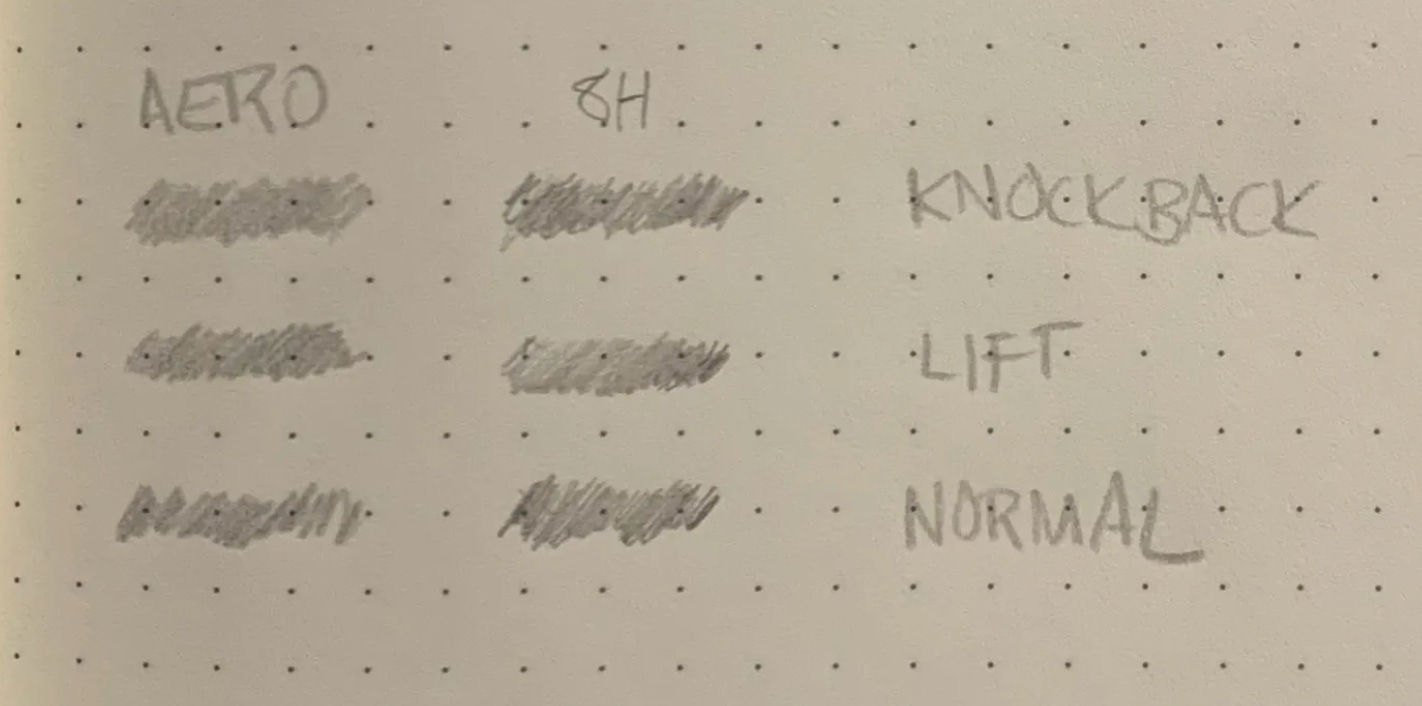 AERO 8H
KNOCKBACK
LIFT
NORMAL